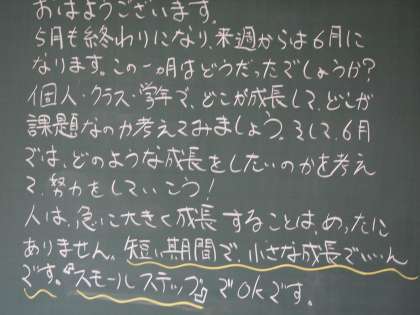 おはようございます。
5月も終わりになり、来週からは6月に
なります。この一ヵ月はどうだったでしょうか?
個人・クラス・学年で、どこが成長して、どこが
課題なのか考えてみましょう。そして、6月
では、どのような成長をしたいのかを考え
て、努力をしていこう!
人は、急に大きく成長することは、めったに
ありません。短い期間で、小さな成長でいいん
です。『スモールステップ』でOKです。